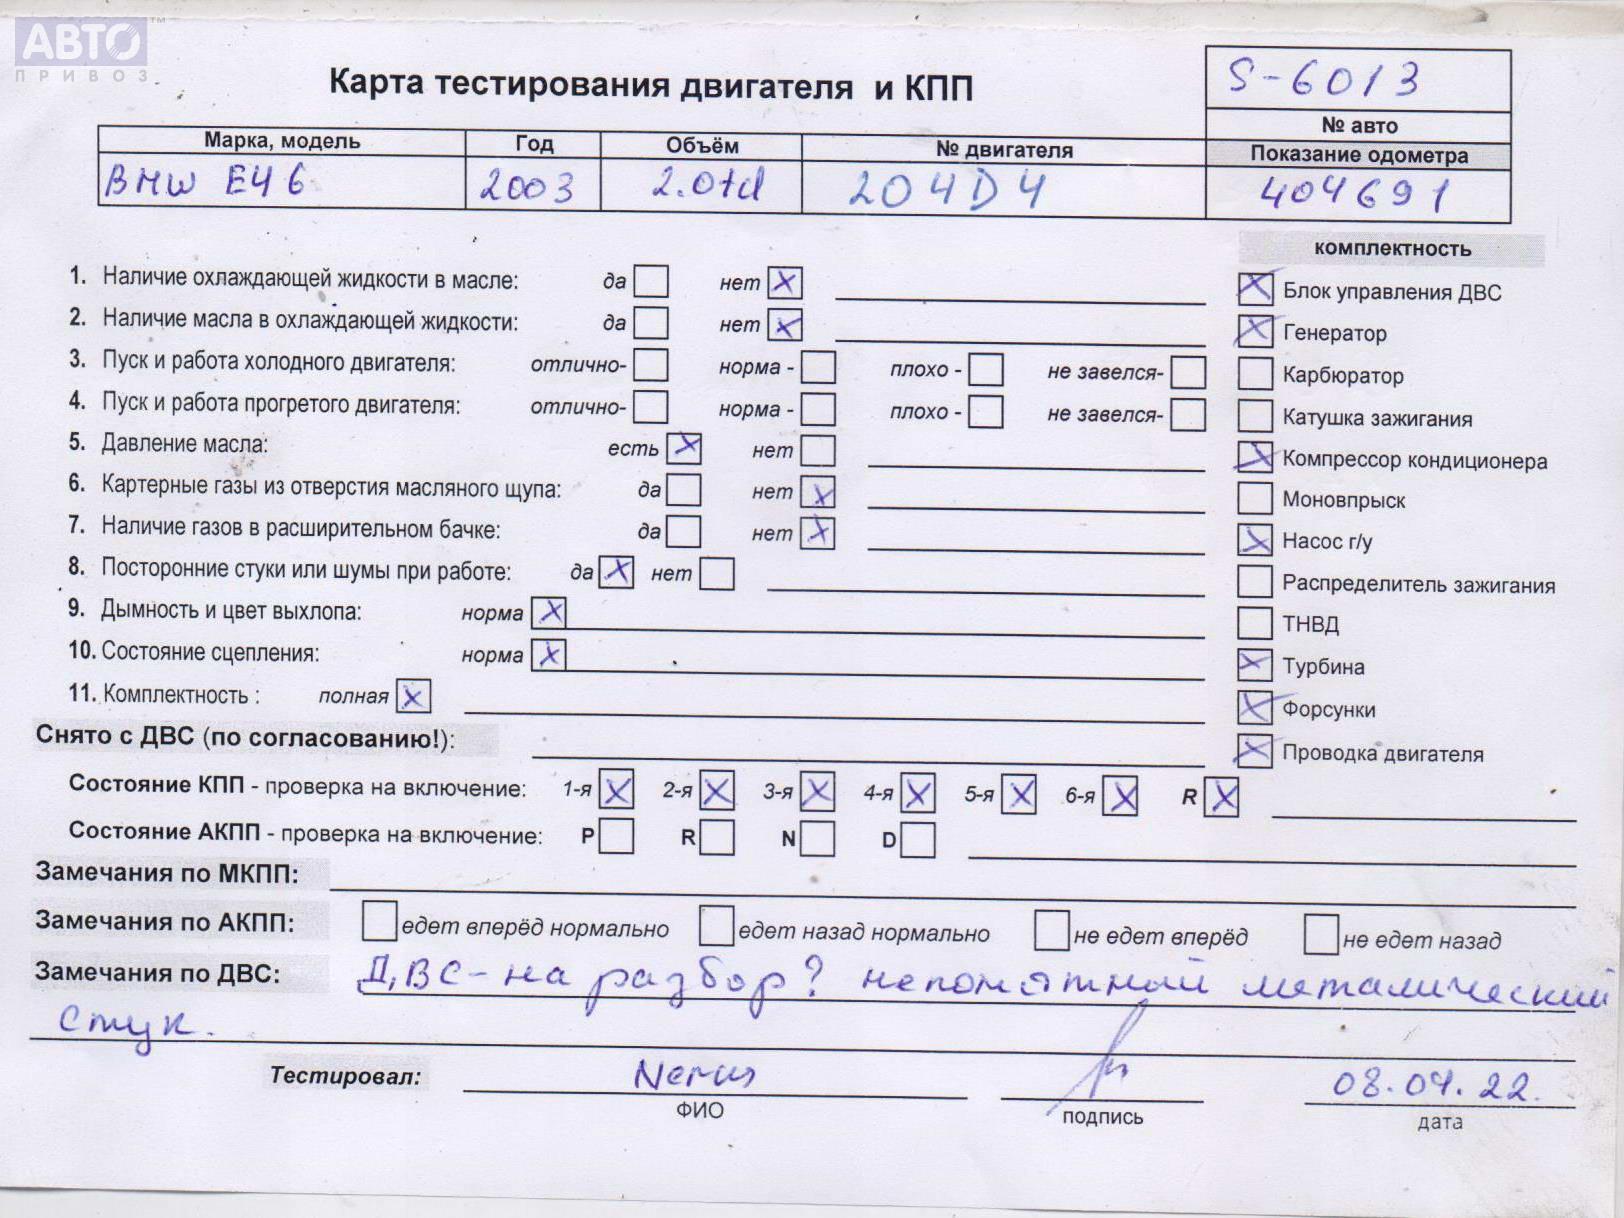 АВТО ™
ПРИВОЗ
Карта тестирования двигателя и КПП
S-6013
№ авто
Марка, модель Год Объём № двигателя Показание одометра
BMW E46 2003 2.0td 204D4 404691
комплектность
1. Наличие охлаждающей жидкости в масле: да нет X
Блок управления ДВС X
2. Наличие масла в охлаждающей жидкости: да нет X
Генератор X
3. Пуск и работа холодного двигателя: отлично- норма - плохо - не завелся-
Карбюратор
4. Пуск и работа прогретого двигателя: отлично- норма - плохо - не завелся-
Катушка зажигания
5. Давление масла: есть X нет
Компрессор кондиционера X
6. Картерные газы из отверстия масляного щупа: да нет X
Моновпрыск
7. Наличие газов в расширительном бачке: да нет X
Насос г/у X
8. Посторонние стуки или шумы при работе: да X нет
Распределитель зажигания
9. Дымность и цвет выхлопа: норма X
ТНВД
10. Состояние сцепления: норма X
Турбина X
11. Комплектность : полная X
Форсунки X
Снято с ДВС (по согласованию!):
Проводка двигателя X
Состояние КПП - проверка на включение: 1-я X 2-я X 3-я X 4-я X 5-я X 6-я X R X
Состояние АКПП - проверка на включение: P R N D
Замечания по МКПП:
Замечания по АКПП: едет вперёд нормально едет назад нормально не едет вперёд не едет назад
Замечания по ДВС: ДВС - на разбор? непонятный металический
стук.
Тестировал: 08.04.22.
ФИО подпись дата